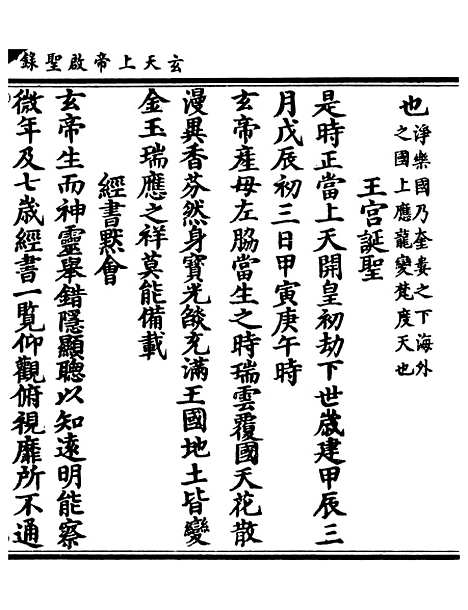 玄天上帝啟聖錄
也淨樂國乃奎婁之下海外
之國上應龍變梵度天也
王宮誕聖
是時正當上天開皇初劫下世歲建甲辰三
月戊辰初三日甲寅庚午時
玄帝產母左脇當生之時瑞雲覆國天花散
漫異香芬然身寶光燄充滿王國地土皆變
金玉瑞應之祥莫能備載
經書黙會
玄帝生而神靈舉錯隱顯聰以知遠明能察
微年及七歲經書一覧仰觀俯視靡所不通